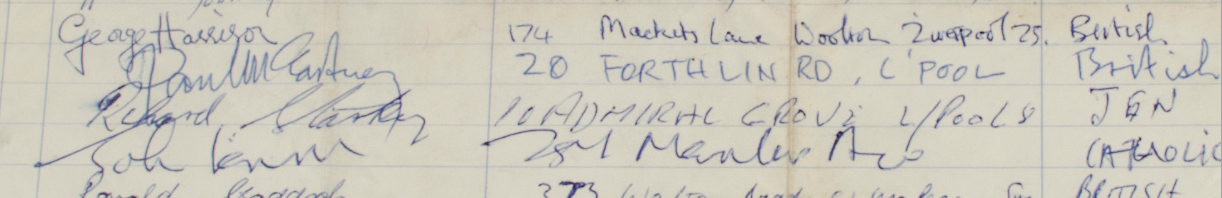 George Harrison 174 Mackets Lane Woolton Liverpool 25. British
Paul McCartney 20 FORTHLIN RD, L'POOL British
Richard Starkey 10 ADMIRAL GROVE L/POOL 8
John Lennon 251 Menlove Ave CATHOLIC
BRITISH